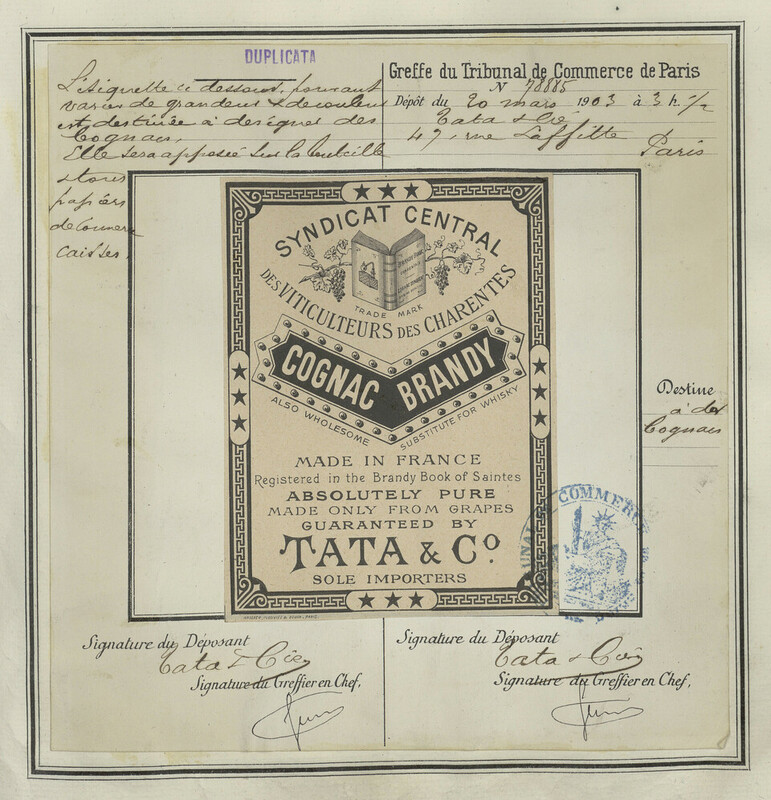 DUPLICATA
L'étiquette ci dessous, pouvant
varier de grandeur & de couleur
est destinée à désigner des
Cognacs.
Elle sera apposée sur la bouteille
stores
papiers
de
caisses.
Greffe du Tribunal de Commerce de Paris
N 78885
Dépôt du 20 mars 1903 à 3 h. 1/2
Tata & Cie
47, rue Laffitte
Paris
★★★
SYNDICAT CENTRAL
TRADE MARK
DES VITICULTEURS DES CHARENTES
COGNAC BRANDY
ALSO WHOLESOME SUBSTITUTE FOR WHISKY
MADE IN FRANCE
Registered in the Brandy Book of Saintes
ABSOLUTELY PURE
MADE ONLY FROM GRAPES
GUARANTEED BY
TATA & Co.
SOLE IMPORTERS
★★★
Destiné
à des
Cognacs
COMMERCE
Signature du Déposant
Tata & Cie
Signature du Greffier en Chef,
Signature du Déposant
Tata & Cie
Signature du Greffier en Chef,